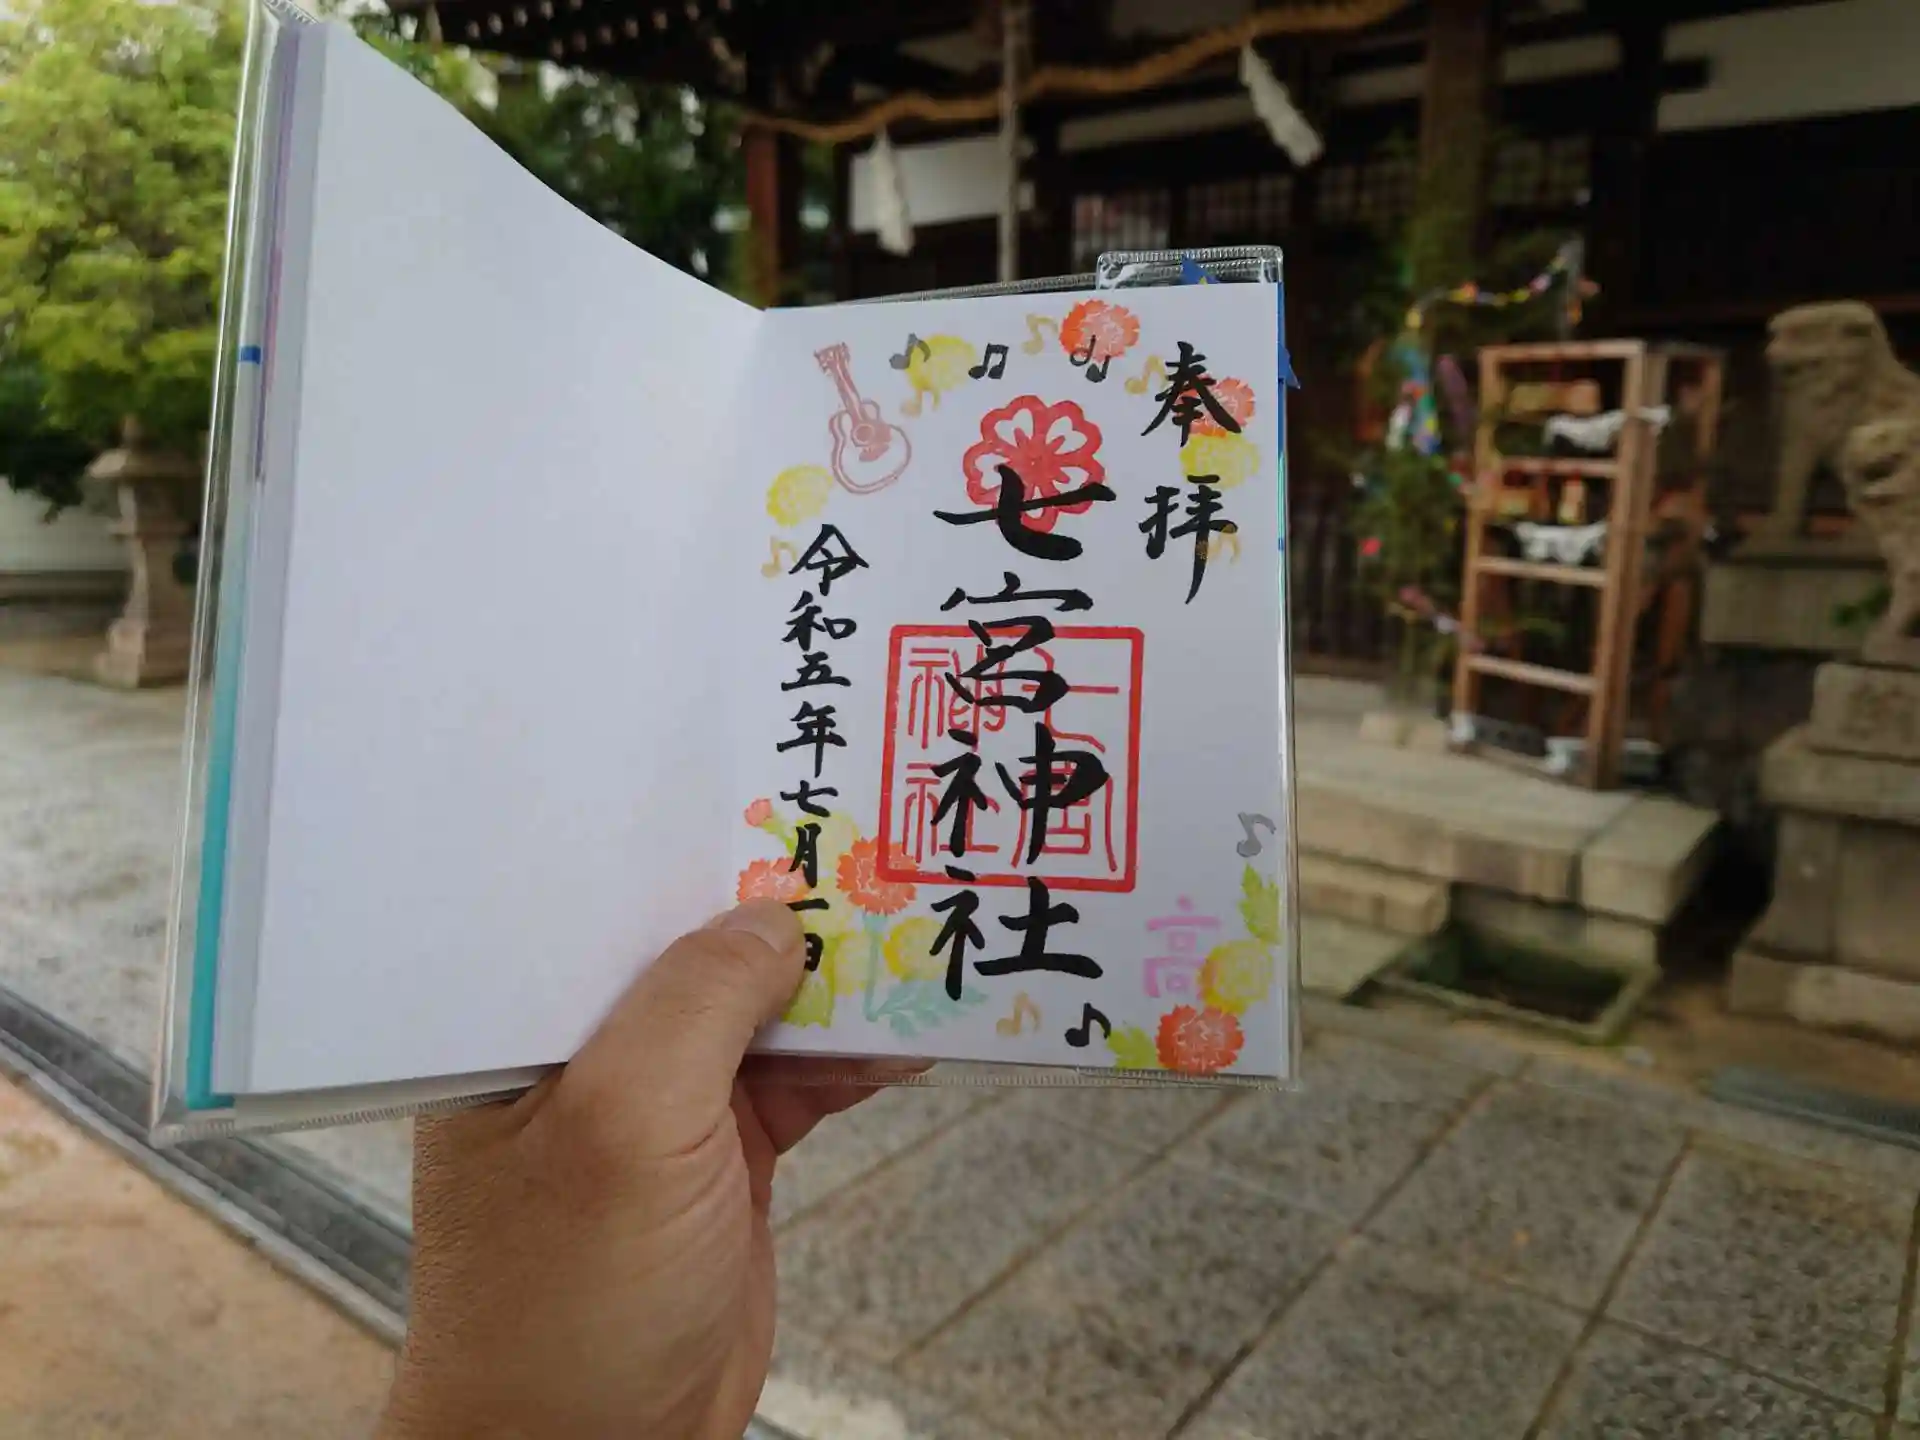 奉拝
七宮神社
七宮
神社
令和五年七月一日
高